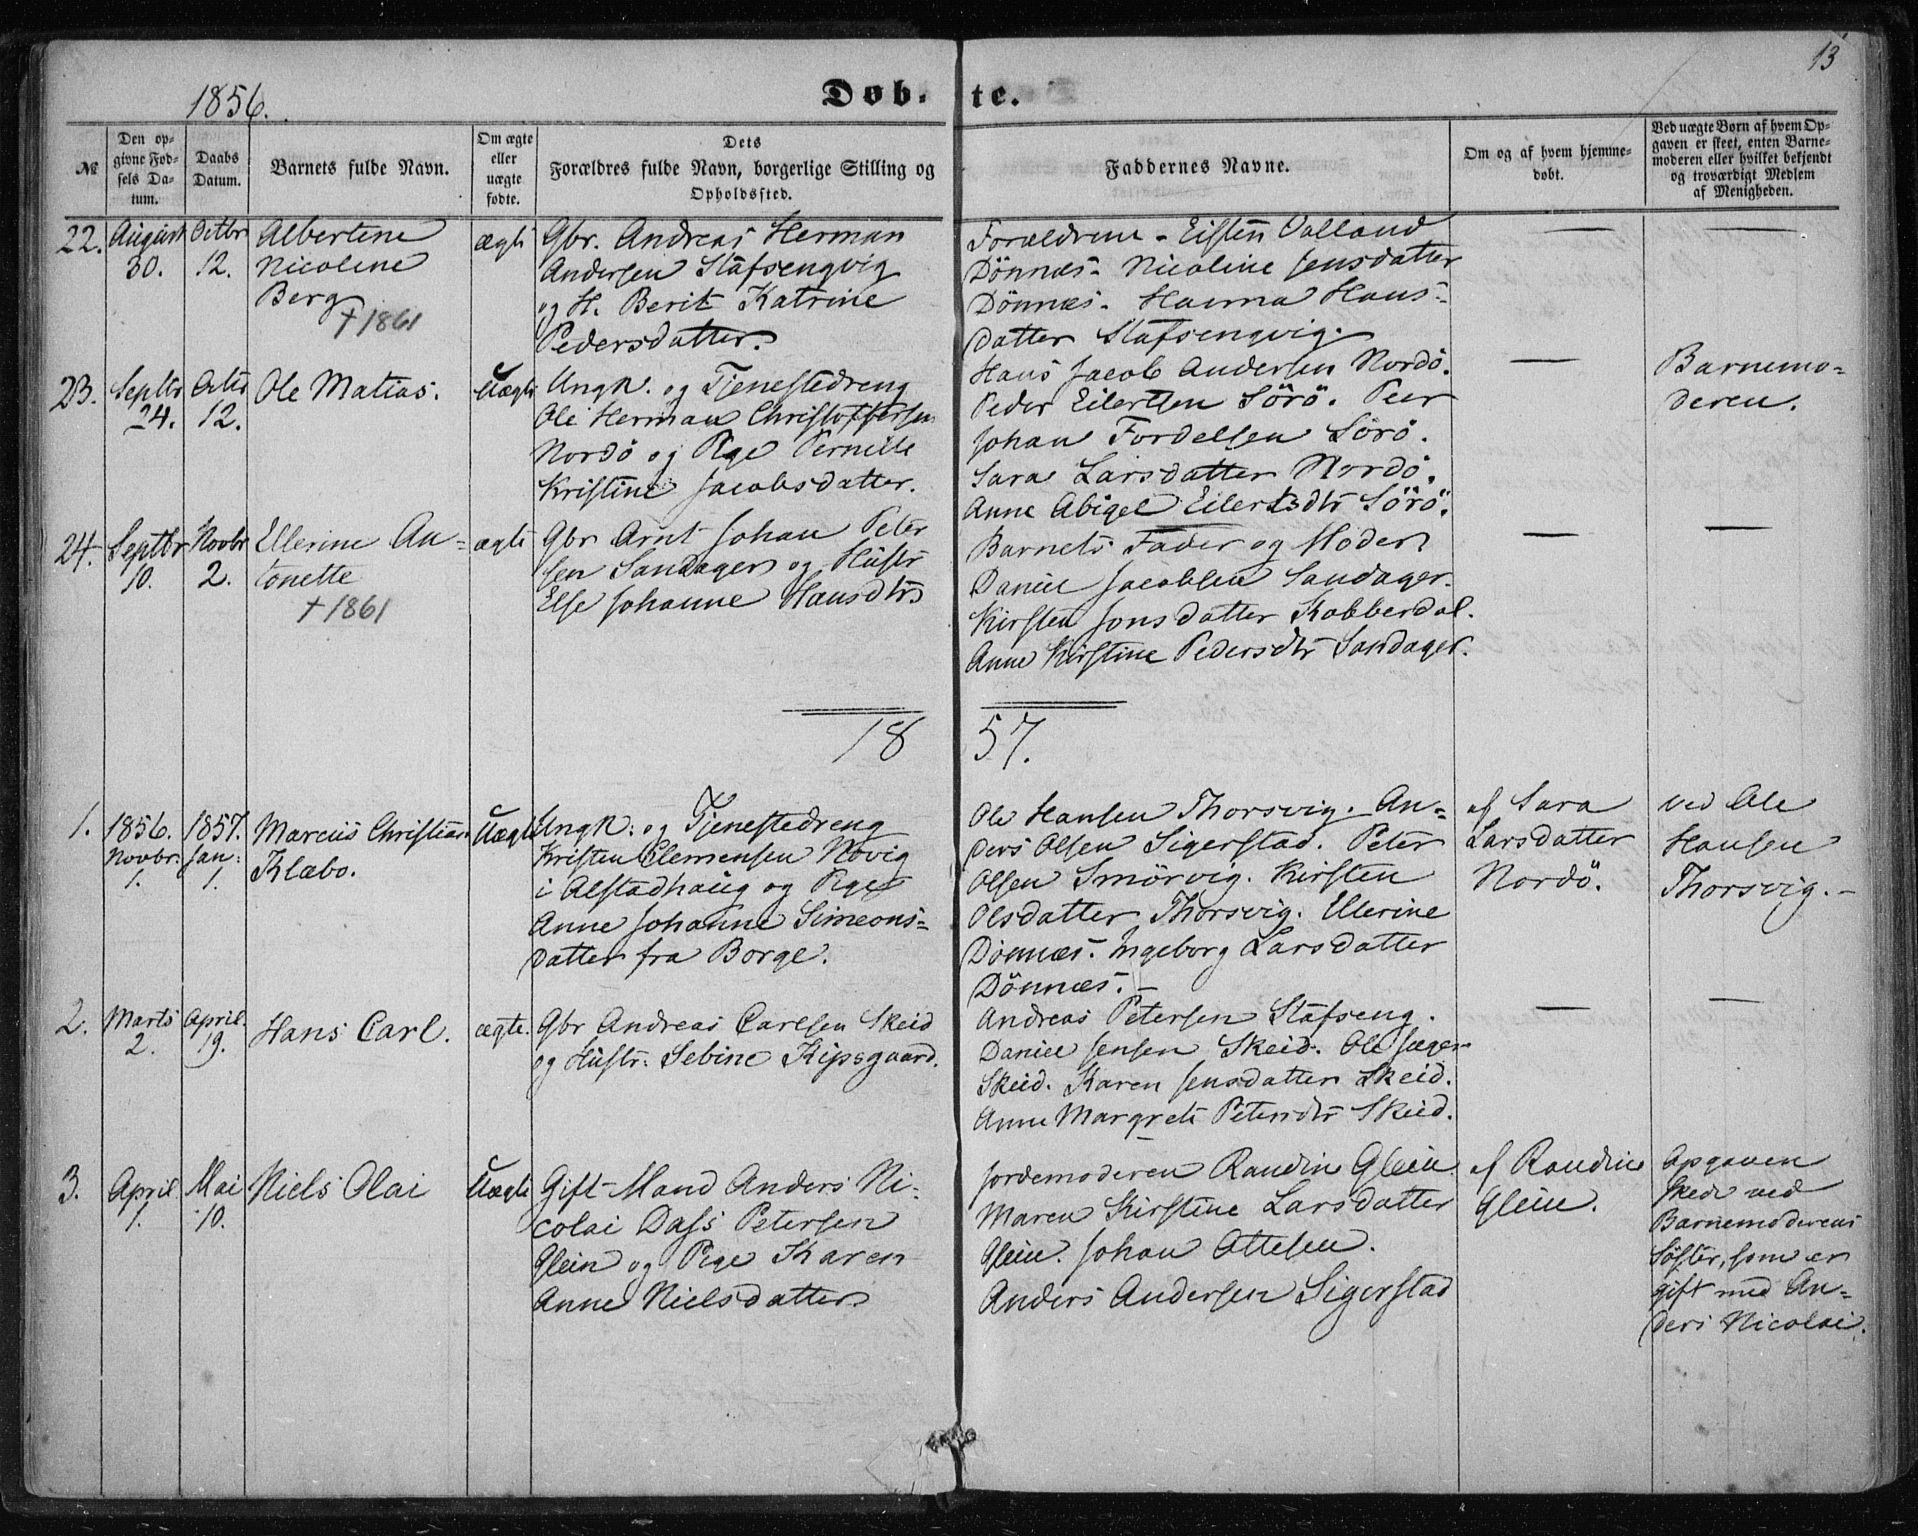 13
1856.
Døb- te.
№
Den op-
givne Fød-
sels Da-
tum.
Daabs
Datum.
Barnets fulde Navn.
Om ægte
eller
uægte
fødte.
Dets
Forældres fulde Navn, borgerlige Stilling og
Opholdssted.
Faddernes Navne.
Om og af hvem hjemme-
døbt.
Ved uægte Børn af hvem Op-
gaven er skeet, enten Barne-
moderen eller hvilket bekjendt
og troværdigt Medlem
af Menigheden.
22.
August
30.
Octbr
12.
Albertine
Nicoline
Berg
† 1861
ægte
Gbr. Andreas Herman
Andersen Stafsengvig
og H. Berit Katrine
Pedersdatter.
Forældrene - Eisten Valland
Dönnes - Nicoline Jensdatter
Dönnes - Hanna Hans-
datter Stafsengvig.
23.
Septbr
24.
Octbr
12.
Ole Matias.
Uægte
Ungk. og Tjenestedreng
Ole Herman Christoffersen
Nordö og Pige Pernille
Kristine Jacobsdatter.
Hans Jacob Andersen Nordö.
Peder Eilertsen Sörö. Peer
Johan Fordelsen Sörö.
Sara Larsdatter Nordö.
Anne Abigel Eilertsdtr Sörö.
Barnemo-
deren.
24.
Septbr
10.
Novbr
2.
Ellerine An-
tonette
† 1861
ægte
Gbr Arnt Johan Peter
sen Sandager og Hustr
Else Johanne Hansdtr
Barnets Fader og Moder
Daniel Jacobsen Sandager.
Kirsten Jonsdatter Kobberdal.
Anne Kirstine Pedersdtr Sandager.
18 57.
1.
1856.
Novbr:
1.
1857.
Jan:
1.
Marcus Christian
Klæbo.
Uægte
Ungk: og Tjenestedreng
Kristen Clemensen Novig
i Alstadhaug og Pige
Anne Johanne Simeons-
datter fra Borge.
Ole Hansen Thorsvig. An-
ders Olsen Sigerstad. Peter
Olsen Smörvig. Kirsten
Olsdatter Thorsvig. Ellerine
Dönnes. Ingeborg Larsdatter
Dönnes. -
af Sara
Larsdatter
Nordö.
ved Ole
Hansen
Thorsvig. -
2.
Marts
2.
April
19.
Hans Carl.
ægte.
Gbr Andreas Carlsen Skeid
og Hustr: Sebine Kipsgaard.
Andreas Petersen Stafseng.
Daniel Jensen Skeid. Ole Jæger
Skeid. Karen Jensdatter Skeid.
Anne Margrete Petersdtr Skeid.
3.
April
1.
Mai
10.
Niels Olai
Uægte
Gift Mand Anders Ni-
colai Dass Petersen
Glein og Pige Karen
Anne Nielsdatter
Jordemoderen Randine Glein
Maren Kirstine Larsdatter
Glein. Johan Ottesen.
Anders Andersen Sigerstad
af Randine
Glein.
Opgaven
skede ved
Barnemoderens
Søster, som er
gift med An-
ders Nicolai.